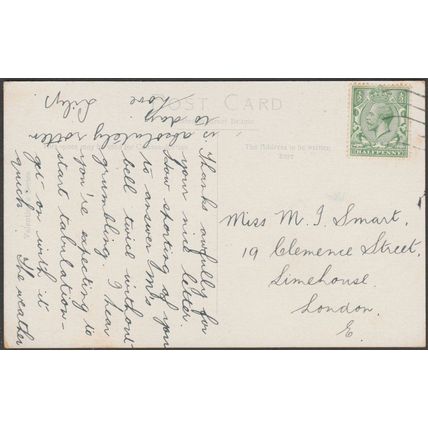 POST CARD
The Address to be written
here
HALFPENNY
Thanks awfully for
your nice letter.
How sporting of you
to answer
bell twice without
grumbling. I hear
you're expecting to
start tabulation –
get on with it
quick. The weather
is absolutely rotten
to day.
Love
Lily.
Miss M. I. Smart,
19 Clemence Street,
Limehouse.
London.
E.